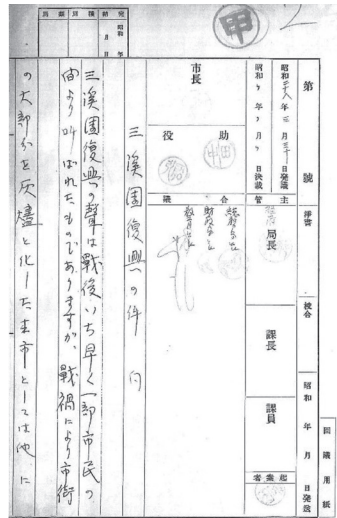 回議用紙
第 號
淨書 校合 昭和 年 月 日発送
昭和二十八年三月三十日発議
昭和 年 月 日決裁
主管
局長
課長
課員
起案者
市長
助役
中田
合議
総務局長
財政局長
三溪園復興の件 伺
三溪園復興の聲は戰後いち早く一部市民の
間より叫ばれたものでありますが、戰禍により市街
の大部分を灰燼と化した本市としては他に
発 年 月 日
昭和
甲
2